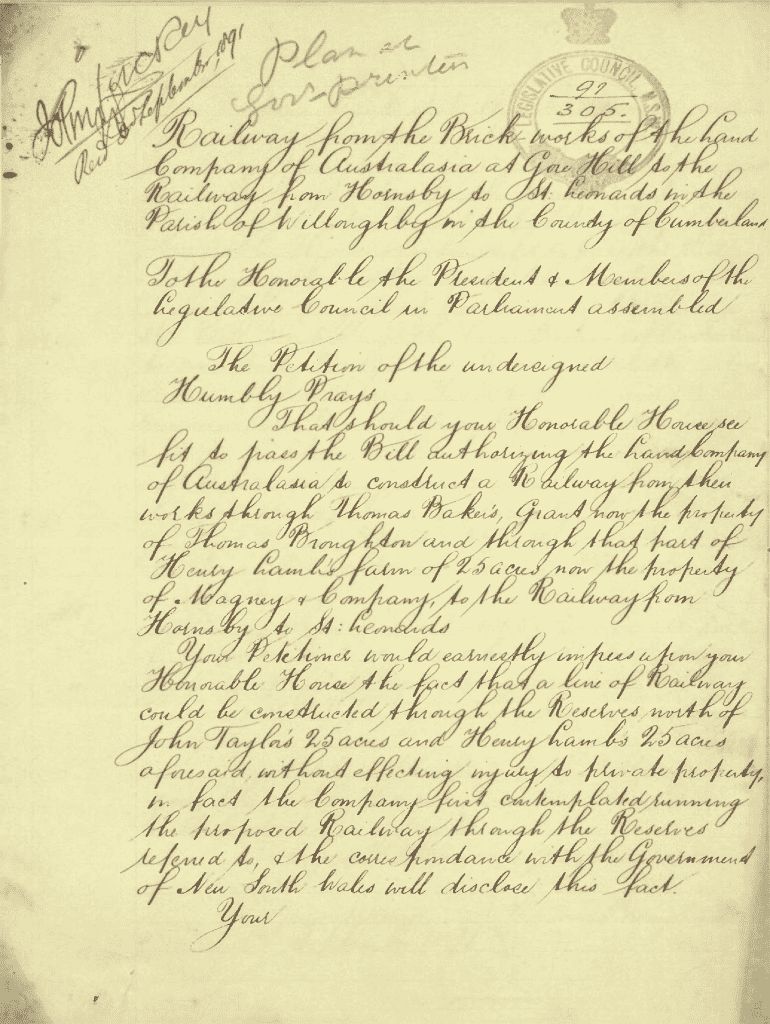 Recd 3 September, 1891
Plan at
Gov. printer
LEGISLATIVE COUNCIL, N.S.
91
305.
Railway from the Brick-works of the Land
Company of Australasia at Gore Hill to the
Railway from Hornsby to St. Leonards in the
Parish of Willoughby in the County of Cumberland
To the Honorable the President & Members of the
Legislative Council in Parliament assembled
The Petition of the undersigned
Humbly Prays
That should your Honorable House see
fit to pass the Bill authorizing the Land Company
of Australasia to construct a Railway from their
works through Thomas Baker's, Grant now the property
of Thomas Broughton and through that part of
Henry Lamb's farm of 25 acres now the property
of Magney & Company, to the Railway from
Hornsby to St: Leonards
Your Petitioner would earnestly impress upon your
Honorable House the fact that a line of Railway
could be constructed through the Reserves north of
John Taylor's 25 acres and Henry Lamb's 25 acres
aforesaid, without effecting injury to private property,
in fact the Company first contemplated running
the proposed Railway through the Reserves
referred to, & the correspondance with the Government
of New South Wales will disclose this fact.
Your